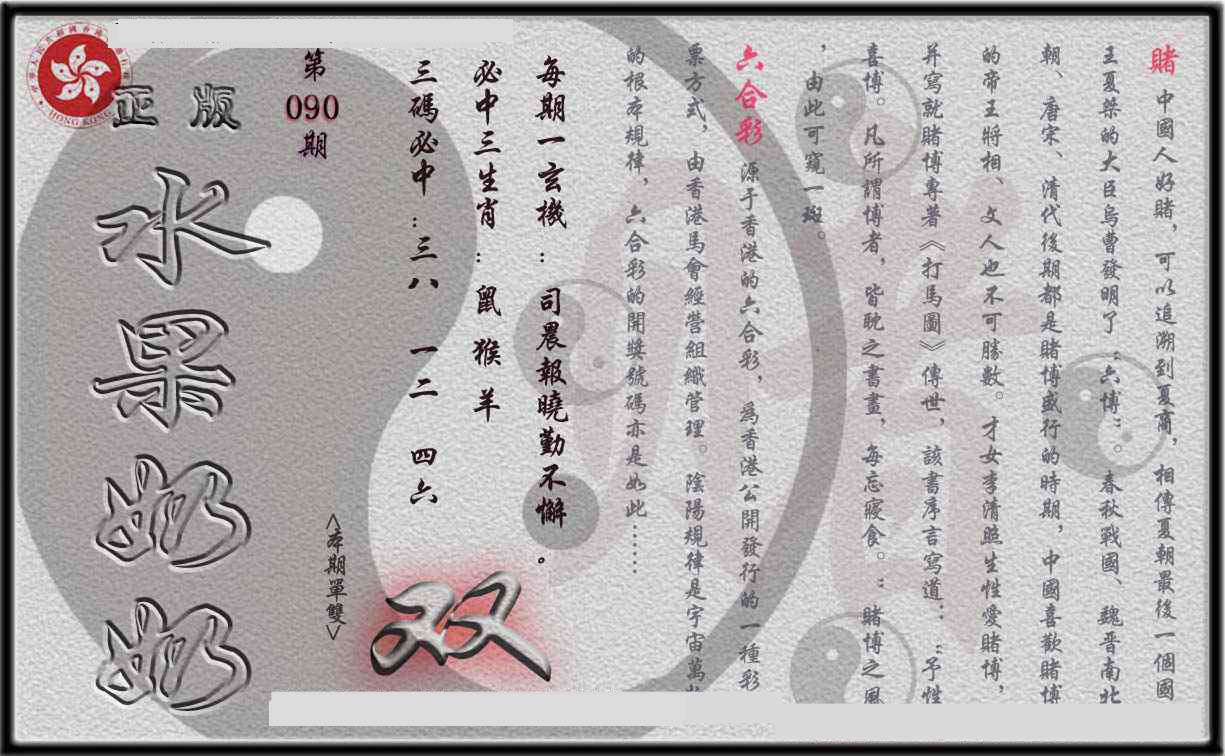 賭中國人好賭，可以追溯到夏商，相傳夏朝最後一個國
王夏桀的大臣烏曹發明了“六博”。春秋戰國、魏晉南北
朝、唐宋、清代後期都是賭博盛行的時期，中國喜歡賭博
的帝王將相、文人也不可勝數。才女李清照生性愛賭博，
并寫就賭博專著《打馬圖》傳世，該書序言寫道：“予性
喜博。凡所謂博者，皆耽之書畫，每忘寢食。”賭博之風
，由此可窺一斑。
六合彩源于香港的六合彩，為香港公開發行的一種彩
票方式，由香港馬會經營組織管理。陰陽規律是宇宙萬
的根本規律，六合彩的開獎號碼亦是如此……
每期一玄機：司晨報曉勤不懈。
必中三生肖：鼠猴羊
三碼必中：三八 一二 四六
第
090
期
<本期單雙>
双
正版
水果奶奶
HONG KONG